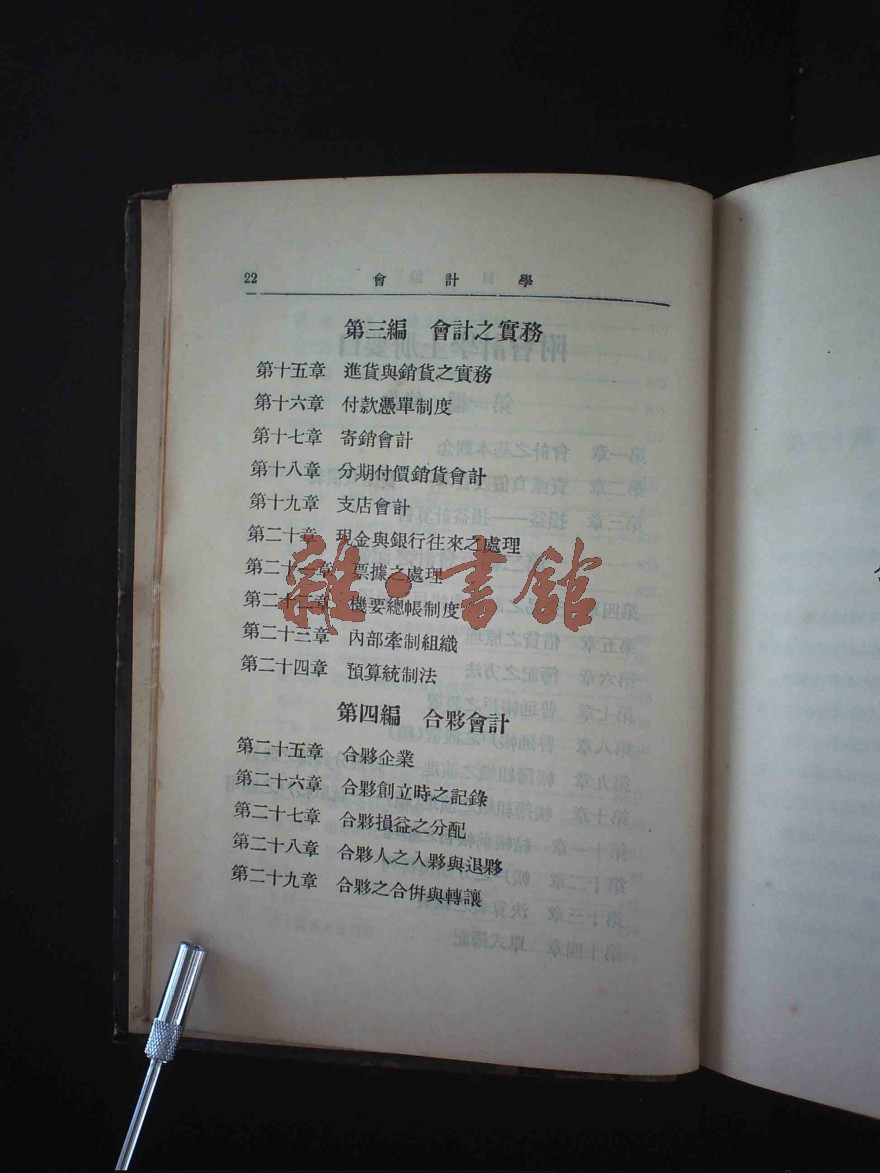 22 會計學
第三編 會計之實務
第十五章 進貨與銷貨之實務
第十六章 付款憑單制度
第十七章 寄銷會計
第十八章 分期付價銷貨會計
第十九章 支店會計
第二十章 現金與銀行往來之處理
第二十一章 票據之處理
第二十二章 機要總帳制度
第二十三章 內部牽制組織
第二十四章 預算統制法
雜·書館
第四編 合夥會計
第二十五章 合夥企業
第二十六章 合夥創立時之記錄
第二十七章 合夥損益之分配
第二十八章 合夥人之入夥與退夥
第二十九章 合夥之合併與轉讓